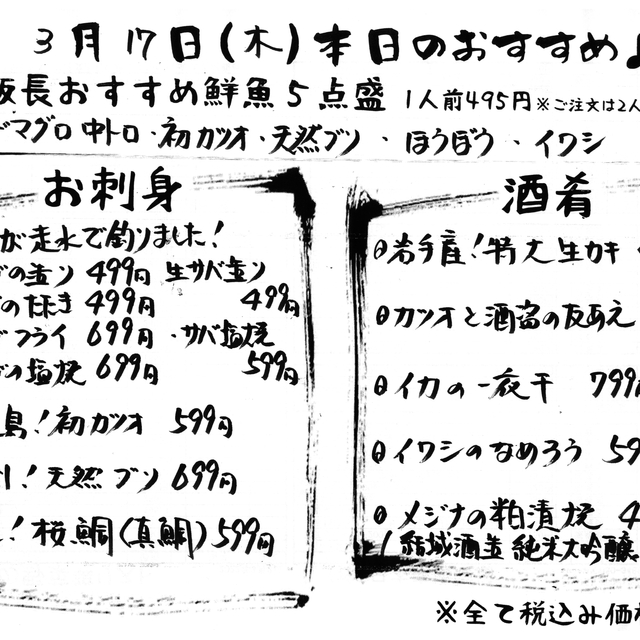 3月17日(木)本日のおすすめ♪
板長おすすめ鮮魚5点盛 1人前495円 ※ご注文は2人
マグロ中トロ・初カツオ・天然ブリ・ほうぼう・イワシ
お刺身
が走水で釣りました!
の造り 499円 生サバ造り
のたたき 499円 499円
フライ 699円 ・サバ塩焼
の塩焼 699円 599円
島!初カツオ 599円
!天然ブリ 699円
!桜鯛(真鯛) 599円
酒肴
岩手産!特大生カキ
カツオと酒盗の友あえ
イカの一夜干 799円
イワシのなめろう 59
メジナの粕漬焼 4
(結城酒造 純米大吟醸
※全て税込み価格